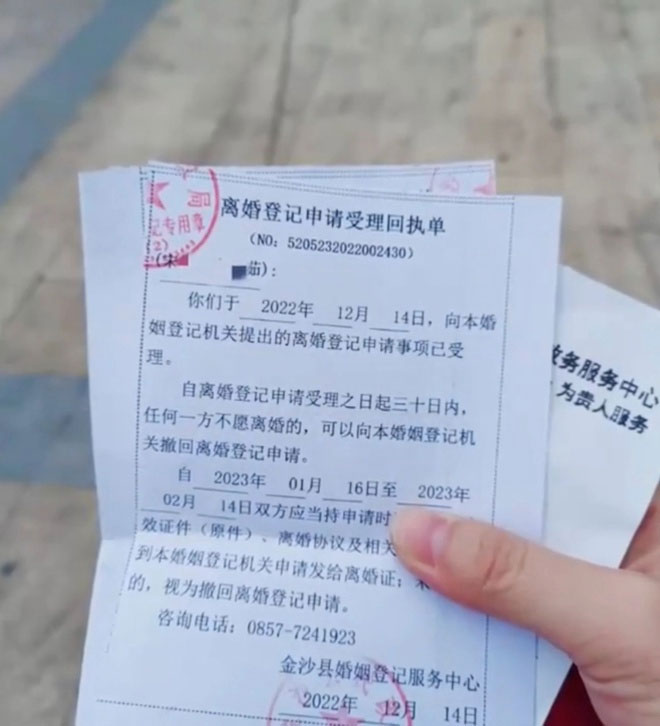 离婚登记申请受理回执单
(NO: 5205232022002430)
局
记专用章
(2)
茹):
你们于 2022年 12月 14日,向本婚
姻登记机关提出的离婚登记申请事项已受
理。
自离婚登记申请受理之日起三十日内,
任何一方不愿离婚的,可以向本婚姻登记机
关撤回离婚登记申请。
自 2023年 01月 16日至 2023年
02月 14日双方应当持申请时
效证件(原件)、离婚协议及相关
到本婚姻登记机关申请发给离婚证;
的,视为撤回离婚登记申请。
咨询电话:0857-7241923
金沙县婚姻登记服务中心
2022年 12月 14日
务服务中心
为贵人服务